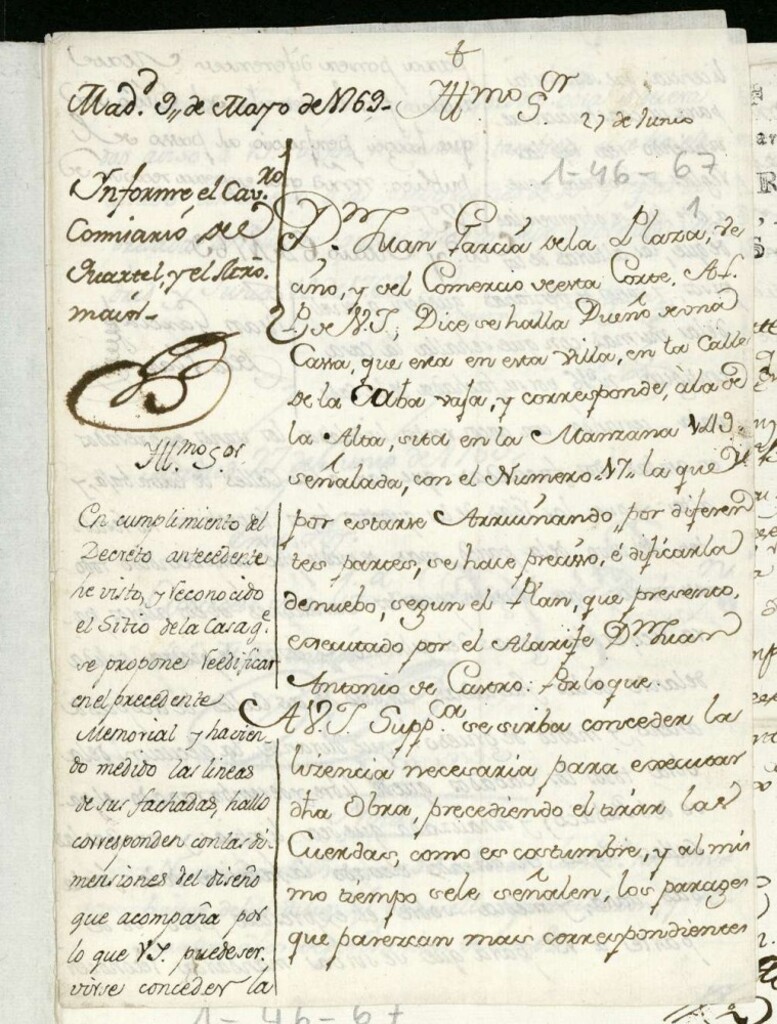 Mad.d 9,, de Mayo de 1769-
Informe el Cav.ro
Comisario del
Quartel, y el Arño.
maior-
Yll.mo S.or
En cumplimiento del
Decreto antecedente
he visto, y reconocido
el Sitio de la Casa q.e
se propone reedificar
en el precedente
Memorial y hacien-
do medido las lineas
de sus fachadas, hallo
corresponden con las di-
mensiones del diseño
que acompaña por
lo que V.I. puede ser-
virse conceder la
Yll.mo S.or
27 de Junio
1-46-67
1
D.n Juan Garcia de la Plaza, ve
cino, y del Comercio de esta Corte, A L.
P. de V.I., Dice se halla Dueño de una
Cassa, que esta en esta Villa, en la Calle
de la Caba vaja, y corresponde, à la de
la Alta, sita en la Manzana 149
señalada, con el Numero 17 la que
por estarse Arruinando, por diferen
tes partes, se hace preciso, édificarla
de nuebo, segun el Plan, que presento,
executado por el Alarife D.n Juan
Antonio de Castro: Por lo que.
A V.I. Supp.ca se sirba conceder la
lizencia necesaria para executar
dha Obra, precediendo el tirar las
Cuerdas, como es costumbre, y al mis
mo tiempo se le señalen, los parages
que parezcan mas correspondientes
1-46-67